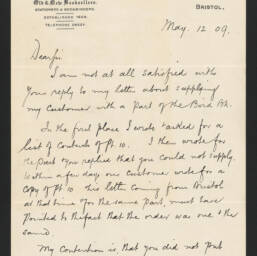 Old & New Booksellers,
STATIONERS & BOOKBINDERS.
ESTABLISHED
TELEPHONE
BRISTOL.
May. 12 09.
Dear Sir
I am not at all satisfied with
your reply to my letter about supplying
my Customer with a part of the Bird Bk.
In the first place I wrote & asked for a
list of Contents of Pt. 10. I then wrote for
the part & you replied that you could not supply.
Within a few days our Customer wrote for a
copy of Pt 10 his letter coming from Bristol
at that time for the same part, must have
pointed to the fact that the order was one & the
same.
My Contention is, that you did not put